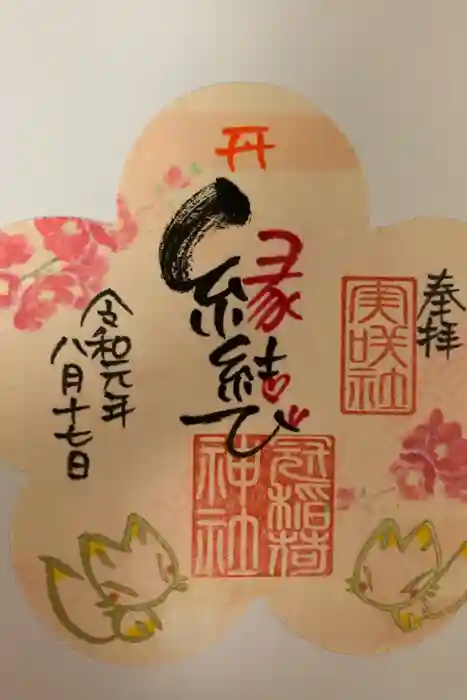 奉拝
実咲社
縁結び
冠稲荷
神社
令和元年
八月十七日